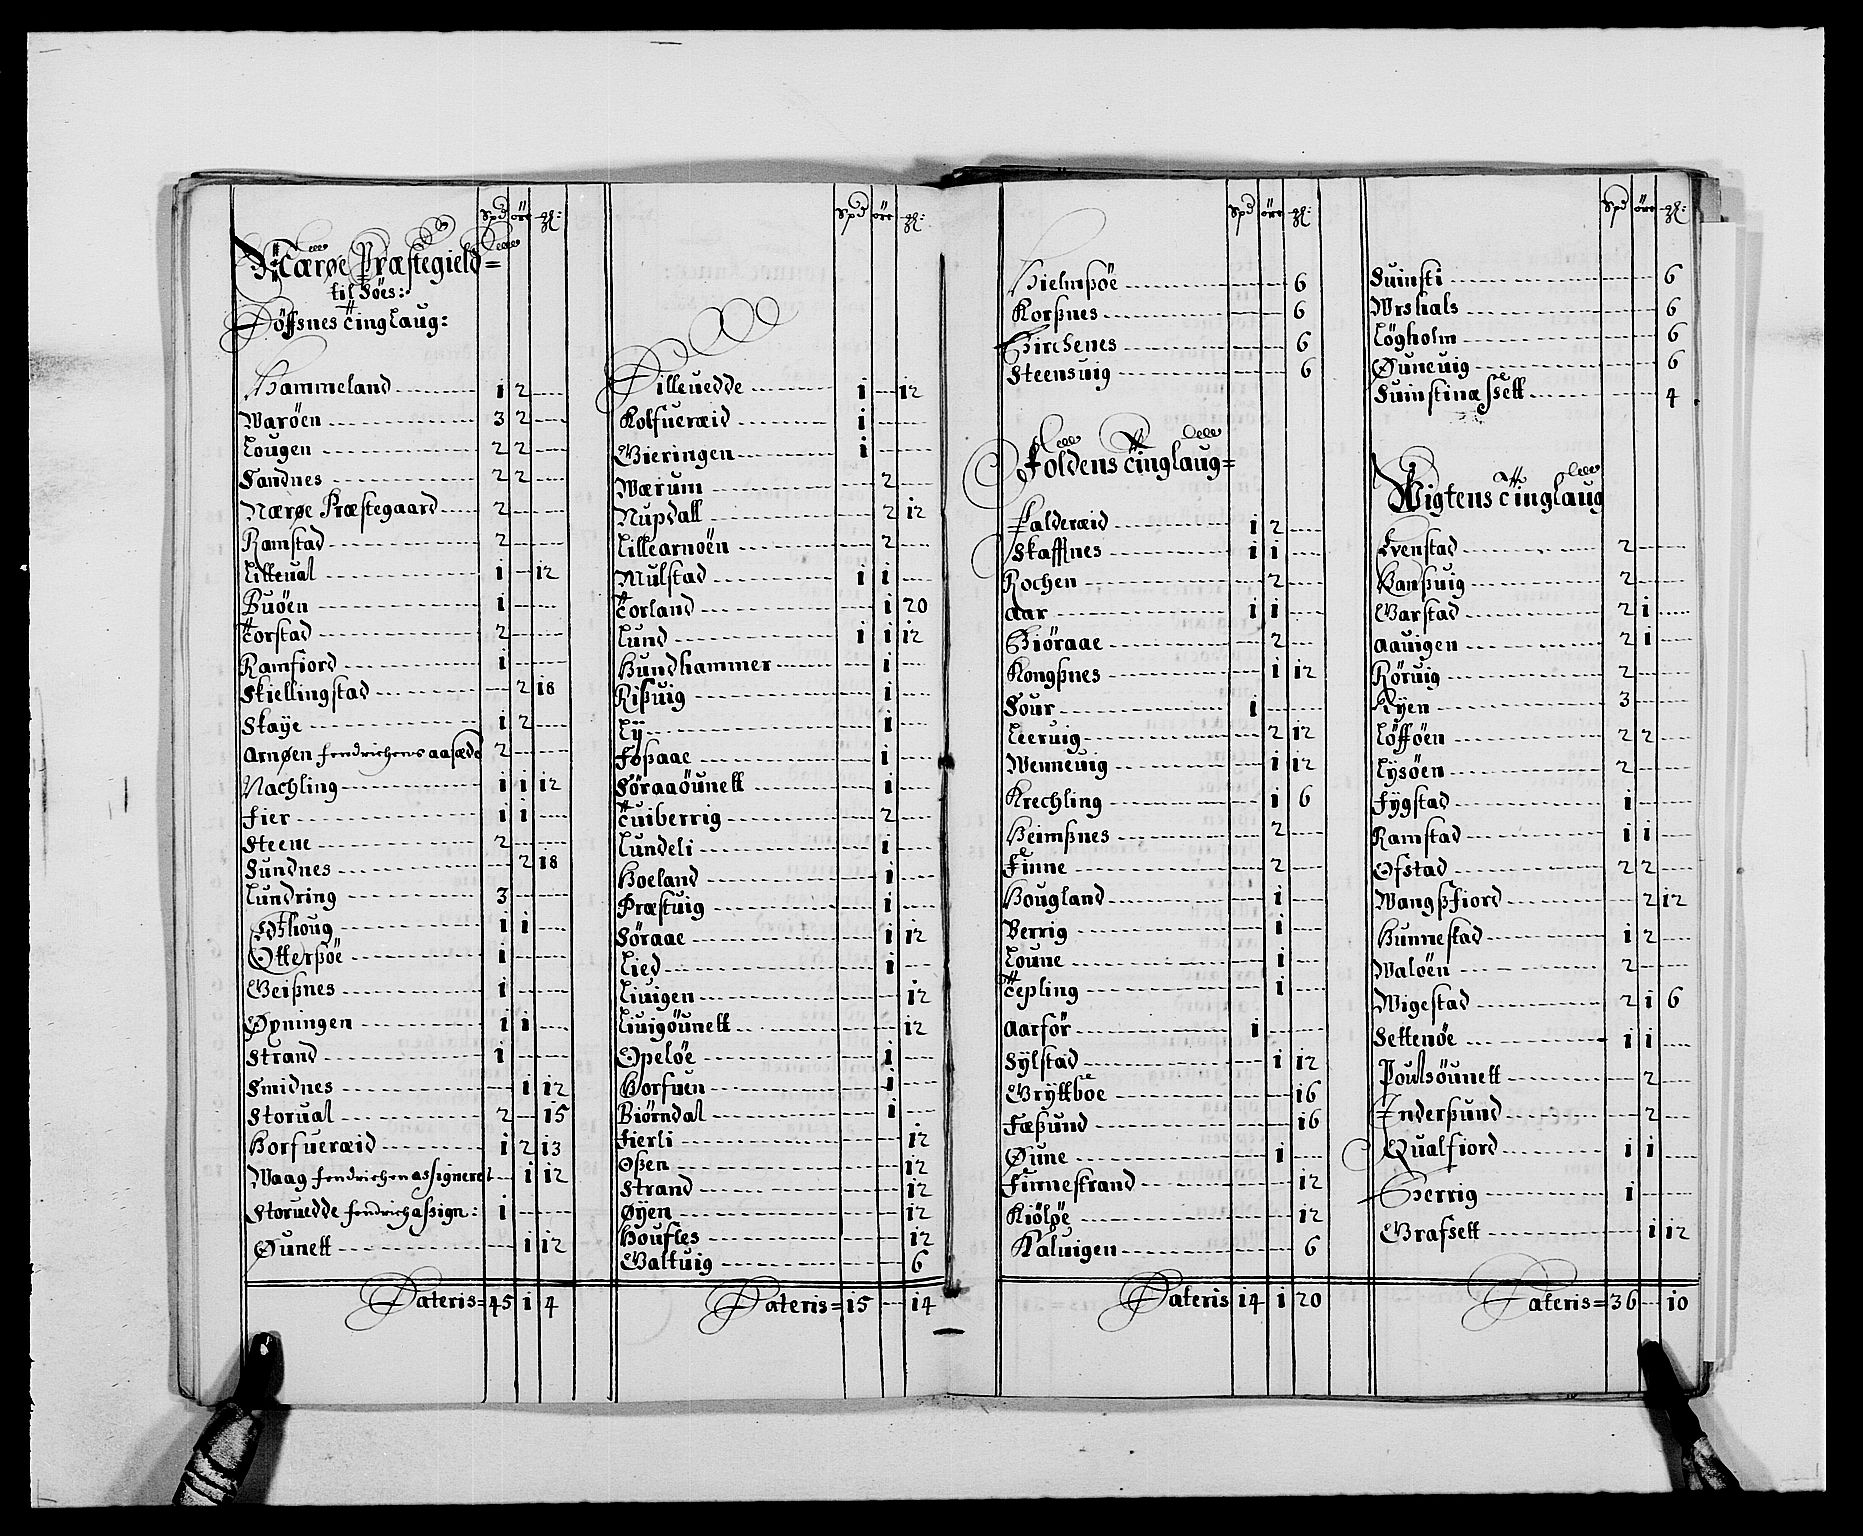 Spd öre ℳ:
Nærøe Præstegield=
til Søes:
Höffsnes Tinglaug:
Hammeland 1 2
Waröen 3 2
Lougen 2 2
Sandnes 2 2
Nærøe Præstegaard 2
Ramstad 2
Lilleual 1 - 12
Buöen 1
Torstad 2
Ramfiord 1
Skiellingstad - 2 18
Skaÿe 1 2
Arnøen fendrichens aasæde 2
Nachling 1 1 12
Fier 1 1
Steene 2
Sundnes - 2 18
Lundring 3
Edshoug 1 1
Otterßöe 1
Geißnes 1
Øpningen 1 1
Strand 1
Smidnes 1 12
Storual 2 - 15
Horfueræid 1 2 13
Waag fendrichen assigneret 1 12
Storuedde fendrich aßign: 1
Øunett 1 12
Lateris= 45 1 4
Spd öre ℳ:
Lilleuedde 1 - 12
Kolfueræid 1
Gieringen 1
Wærum 2
Nupdall 2 12
Lillearnöen 2
Mulstad 1 1
Torland 1 20
Lund 1 1 12
Hundhammer 1
Rißuig 1
Lÿ 1
Foßaae 1
Söraaöunett 1
Tuiberrig 2
Lundeli 1
Hoeland 1
Præstuig 1
Söraae 1 12
Lied 1
Liuigen 12
Liuigöunett 12
Opelöe 1
Horfuen 1
Biörndal 1
Fierli 12
Oßen 12
Strand 12
Øyen 12
Houfles 12
Galtuig 6
Lateris= 15 - 14
Spd öre ℳ:
Hielmßöe 6
Korßnes 6
Kirchenes 6
Steensuig 6
Foldens Tinglaug=
Falderæid 1 2
Skaffnes 1 1
Rochen 2
Aar 1 1
Giöraae 2
Kongßnes 1 12
Sour 1
Leeruig 2 12
Wenneuig 1 12
Krechling 1 6
Heimßnes 2
Finne 2
Hougland 1
Berrig 1
Loune 1
Tepling 1
Aarför 1
Sÿlstad 1 12
Grÿttböe 16
Fæßund 16
Øune 1
Finnestrand 12
Kiölöe 12
Kaluigen 6
Lateris 14 1 20
Spd öre ℳ:
Suinsti 6
Wrshals 6
Lögholm 6
Øuneuig 6
Suinstinæssett 4
Wigtens Tinglaug
Evenstad 2
Hanßuig 2
Garstad 2 1
Aauigen 2 1
Röruig 2
Ryen 3
Löfföen 2 2
Lysöen 2
Fÿgstad 1
Ramstad 1 1
Ofstad 2 2
Wangßfiord 2 12
Hunnestad 1 2
Walöen 2
Wigestad 2 1 6
Settenöe 1 1
Poulsöunett 2
Inderßund 2
Qualfiord 1 1
Berrig 1
Grafsett 1 12
Lateris= 36 - 10